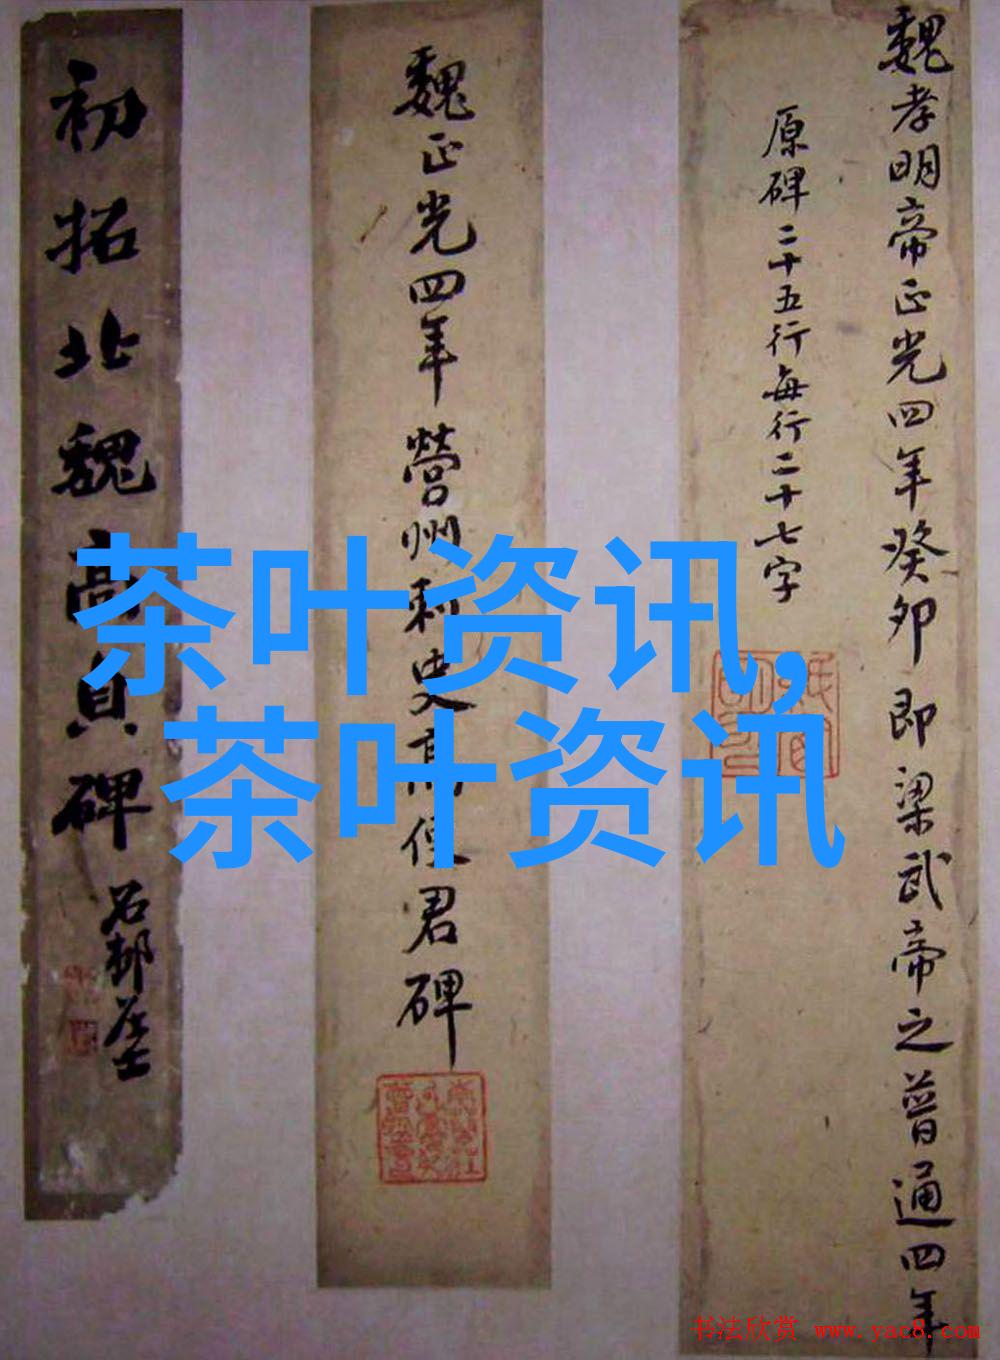 魏孝明帝正光四年癸卯即梁武帝之普通四年
原碑二十五行每行二十七字
魏正光四年營州刺史高使君碑
初拓北魏高貞碑
茶叶资讯,
茶叶资讯
书法欣赏 www.yac8.com